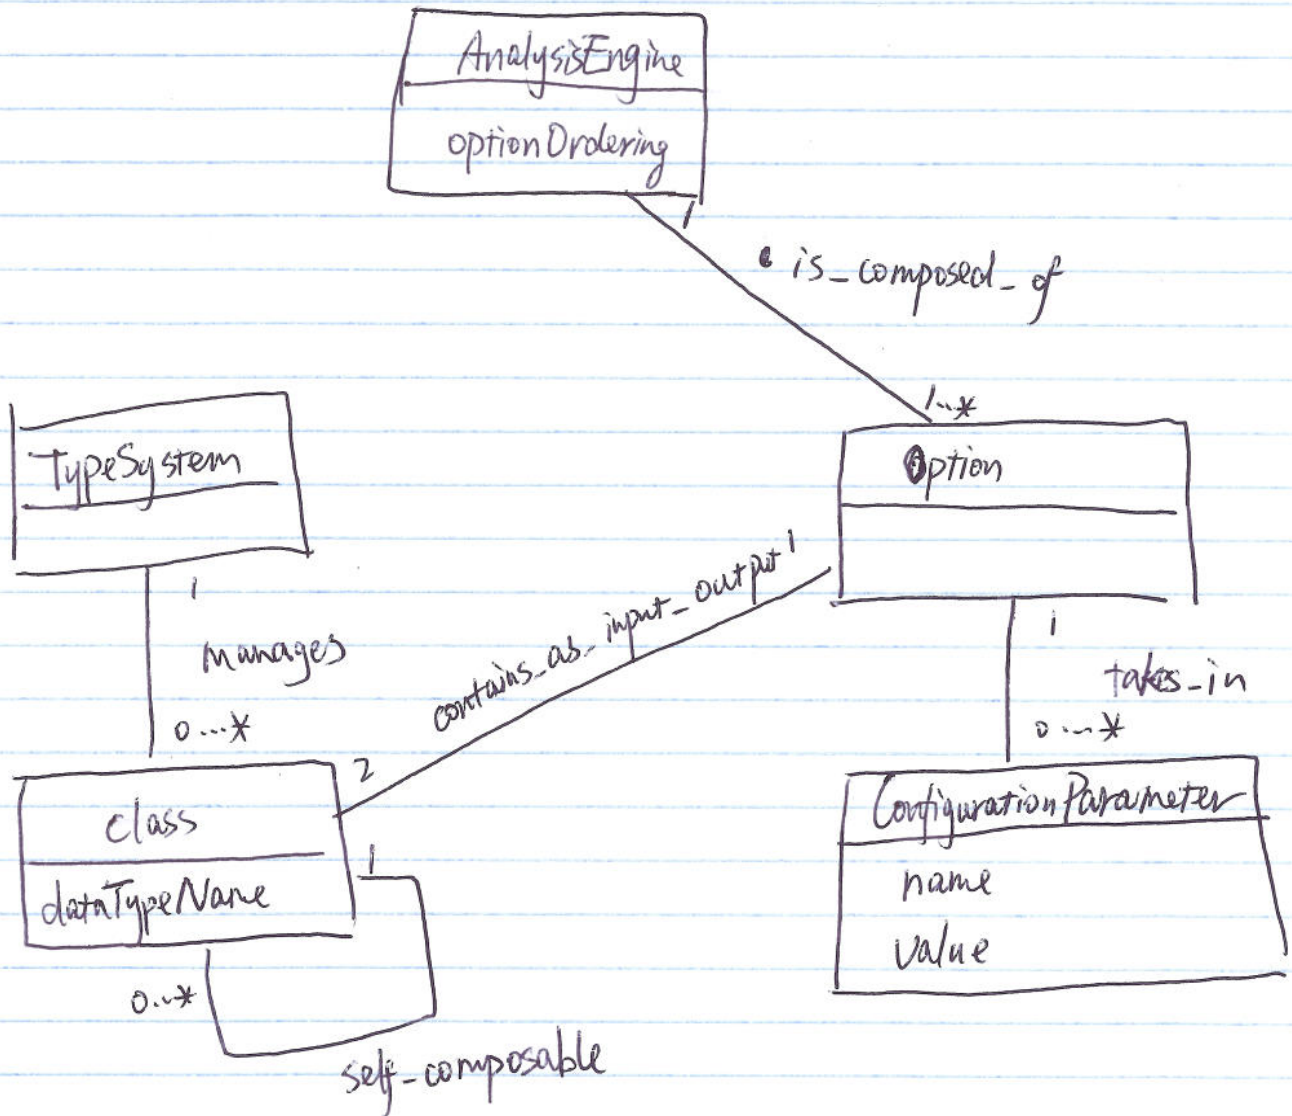 AnalysisEngine
optionOrdering
1
is_composed_of
1..*
TypeSystem
Option
1
manages
0...*
contains_as_input_output
1
2
1
takes_in
0...*
class
dataTypeName
1
0..*
self_composable
ConfigurationParameter
name
value